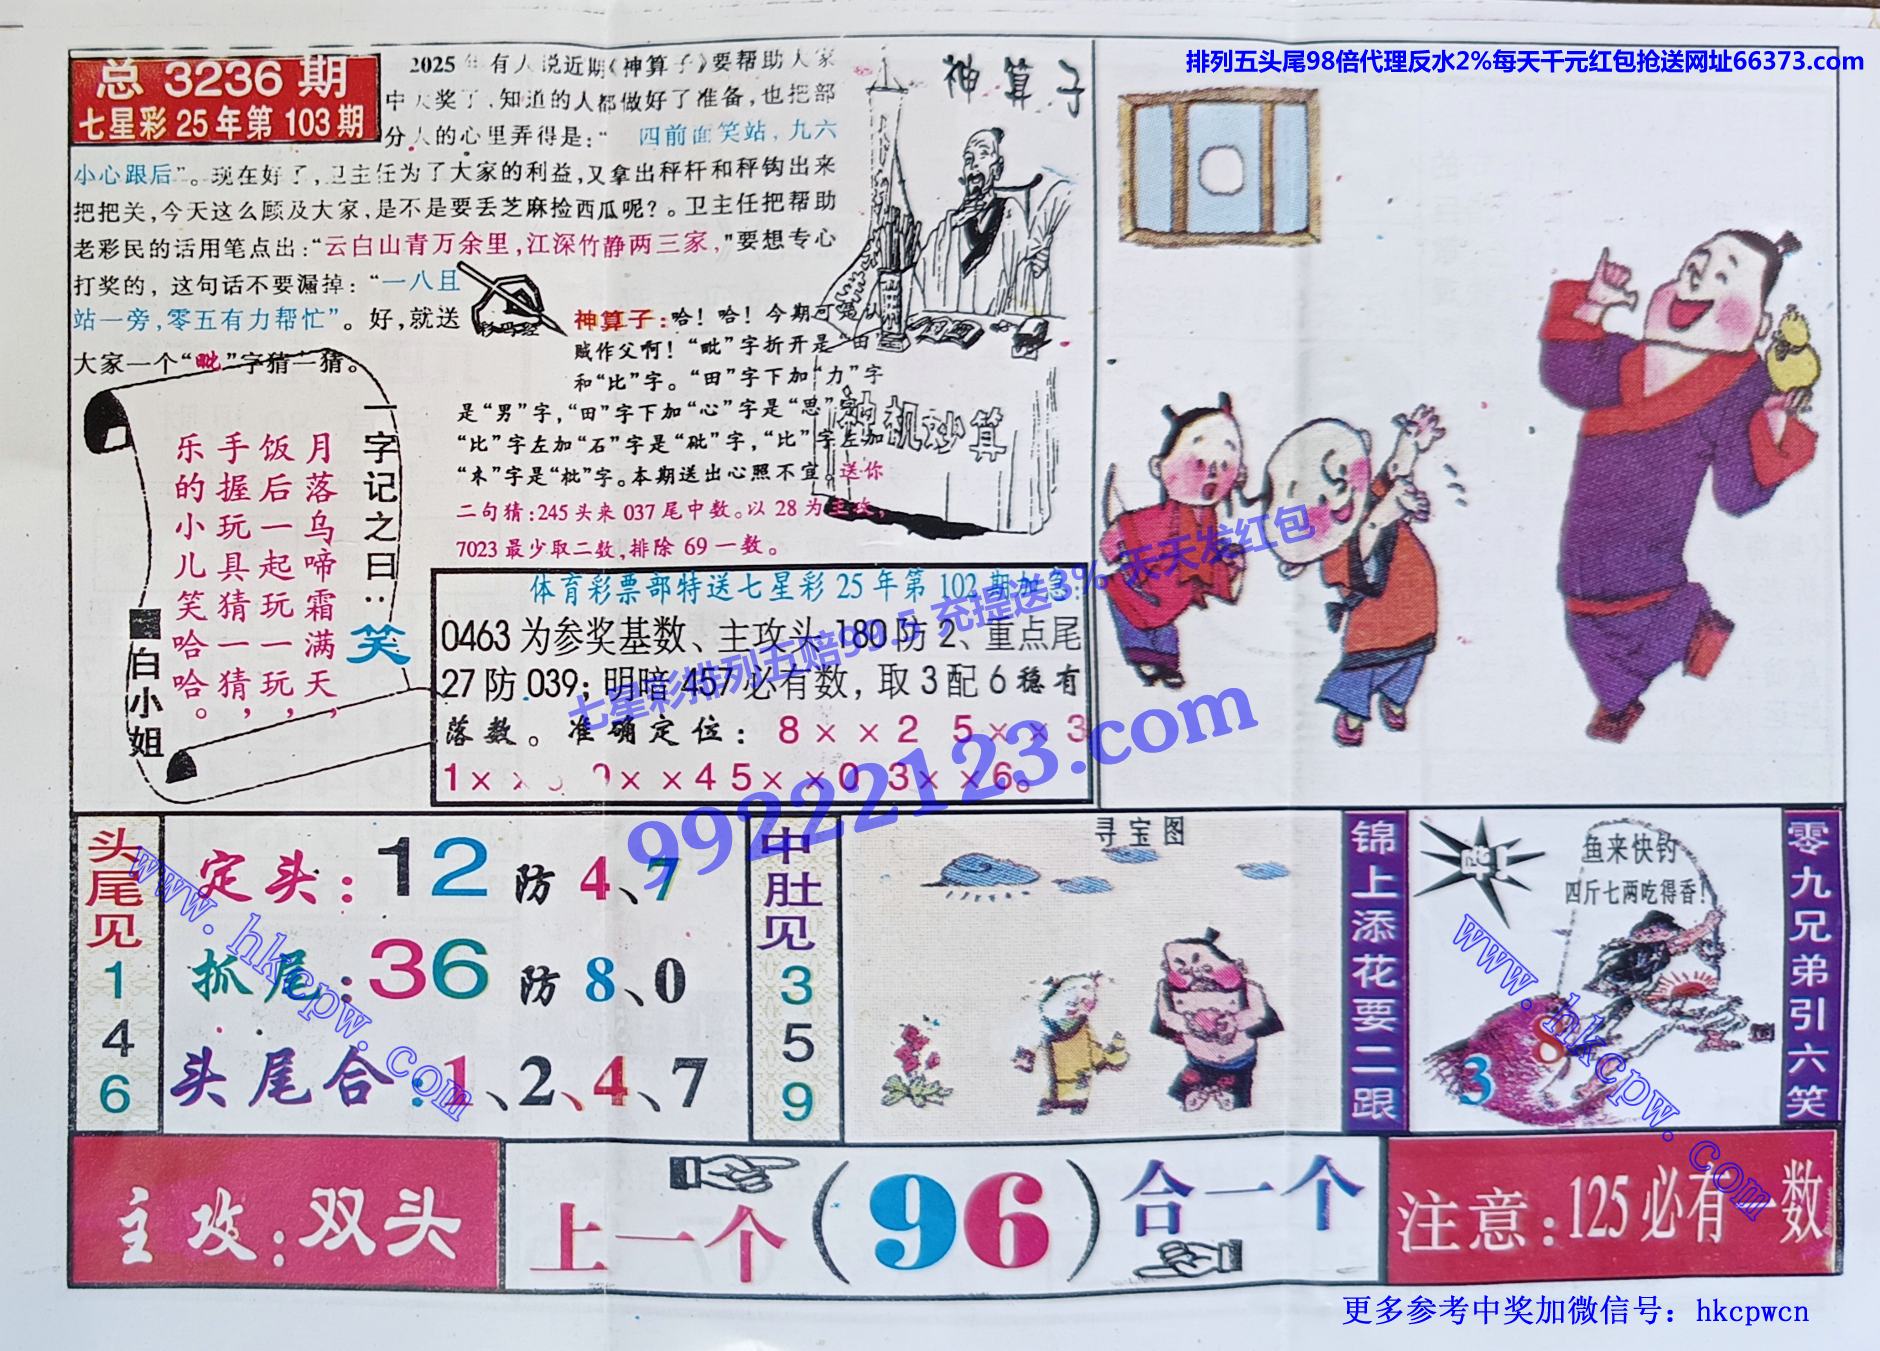 排列五头尾98倍代理反水2%每天千元红包抢送网址66373.com
总 3236 期
七星彩 25 年第 103 期
2025 年有人说近期《神算子》要帮助人家
中大奖了,知道的人都做好了准备,也把部
分人的心里弄得是:“ 四前面笑站,九六
小心跟后”。现在好了,卫主任为了大家的利益,又拿出秤杆和秤钩出来
把把关,今天这么顾及大家,是不是要丢芝麻捡西瓜呢?。卫主任把帮助
老彩民的话用笔点出:“云白山青万余里,江深竹静两三家,”要想专心
打奖的, 这句话不要漏掉: “一八且
站一旁,零五有力帮忙”。好,就送
大家一个“毗”字猜一猜。
神算子
神算子:哈!哈!今期可是认
贼作父啊!“毗”字折开是“田”
和“比”字。“田”字下加“力”字
是“男”字,“田”字下加“心”字是“思”字
“比”字左加“石”字是“砒”字,“比”字左加
“木”字是“枇”字。本期送出心照不宣。送你
二句猜:245 头来 037 尾中数。以 28 为主攻,
7023 最少取二数,排除 69 一数。
神机妙算
一字记之曰:笑
月落乌啼霜满天,
饭后一起玩一玩,
手握玩具猜一猜,
乐的小儿笑哈哈。
白小姐
体育彩票部特送七星彩 25 年第 102 期加急:
0463 为参奖基数、主攻头 180 防 2、重点尾
27 防 039; 明暗 457 必有数, 取 3 配 6 稳有
落数。准确定位: 8 × × 2 5 × × 3
× × 4 5 × × 0 3 × × 6。
七星彩排列五赔99.5 充提送3% 天天发红包
99222123.com
头尾见
1
4
6
定头: 12 防 4、7
抓尾: 36 防 8、0
头尾合: 1、2、4、7
中肚见
3
5
9
寻宝图
锦上添花要二跟
鱼来快钓
四斤七两吃得香!
3
8
零九兄弟引六笑
www.hkcpw.com
www.hkcpw.com
主攻: 双头
上一个(96)合一个
注意: 125 必有一数
更多参考中奖加微信号: hkcpwcn